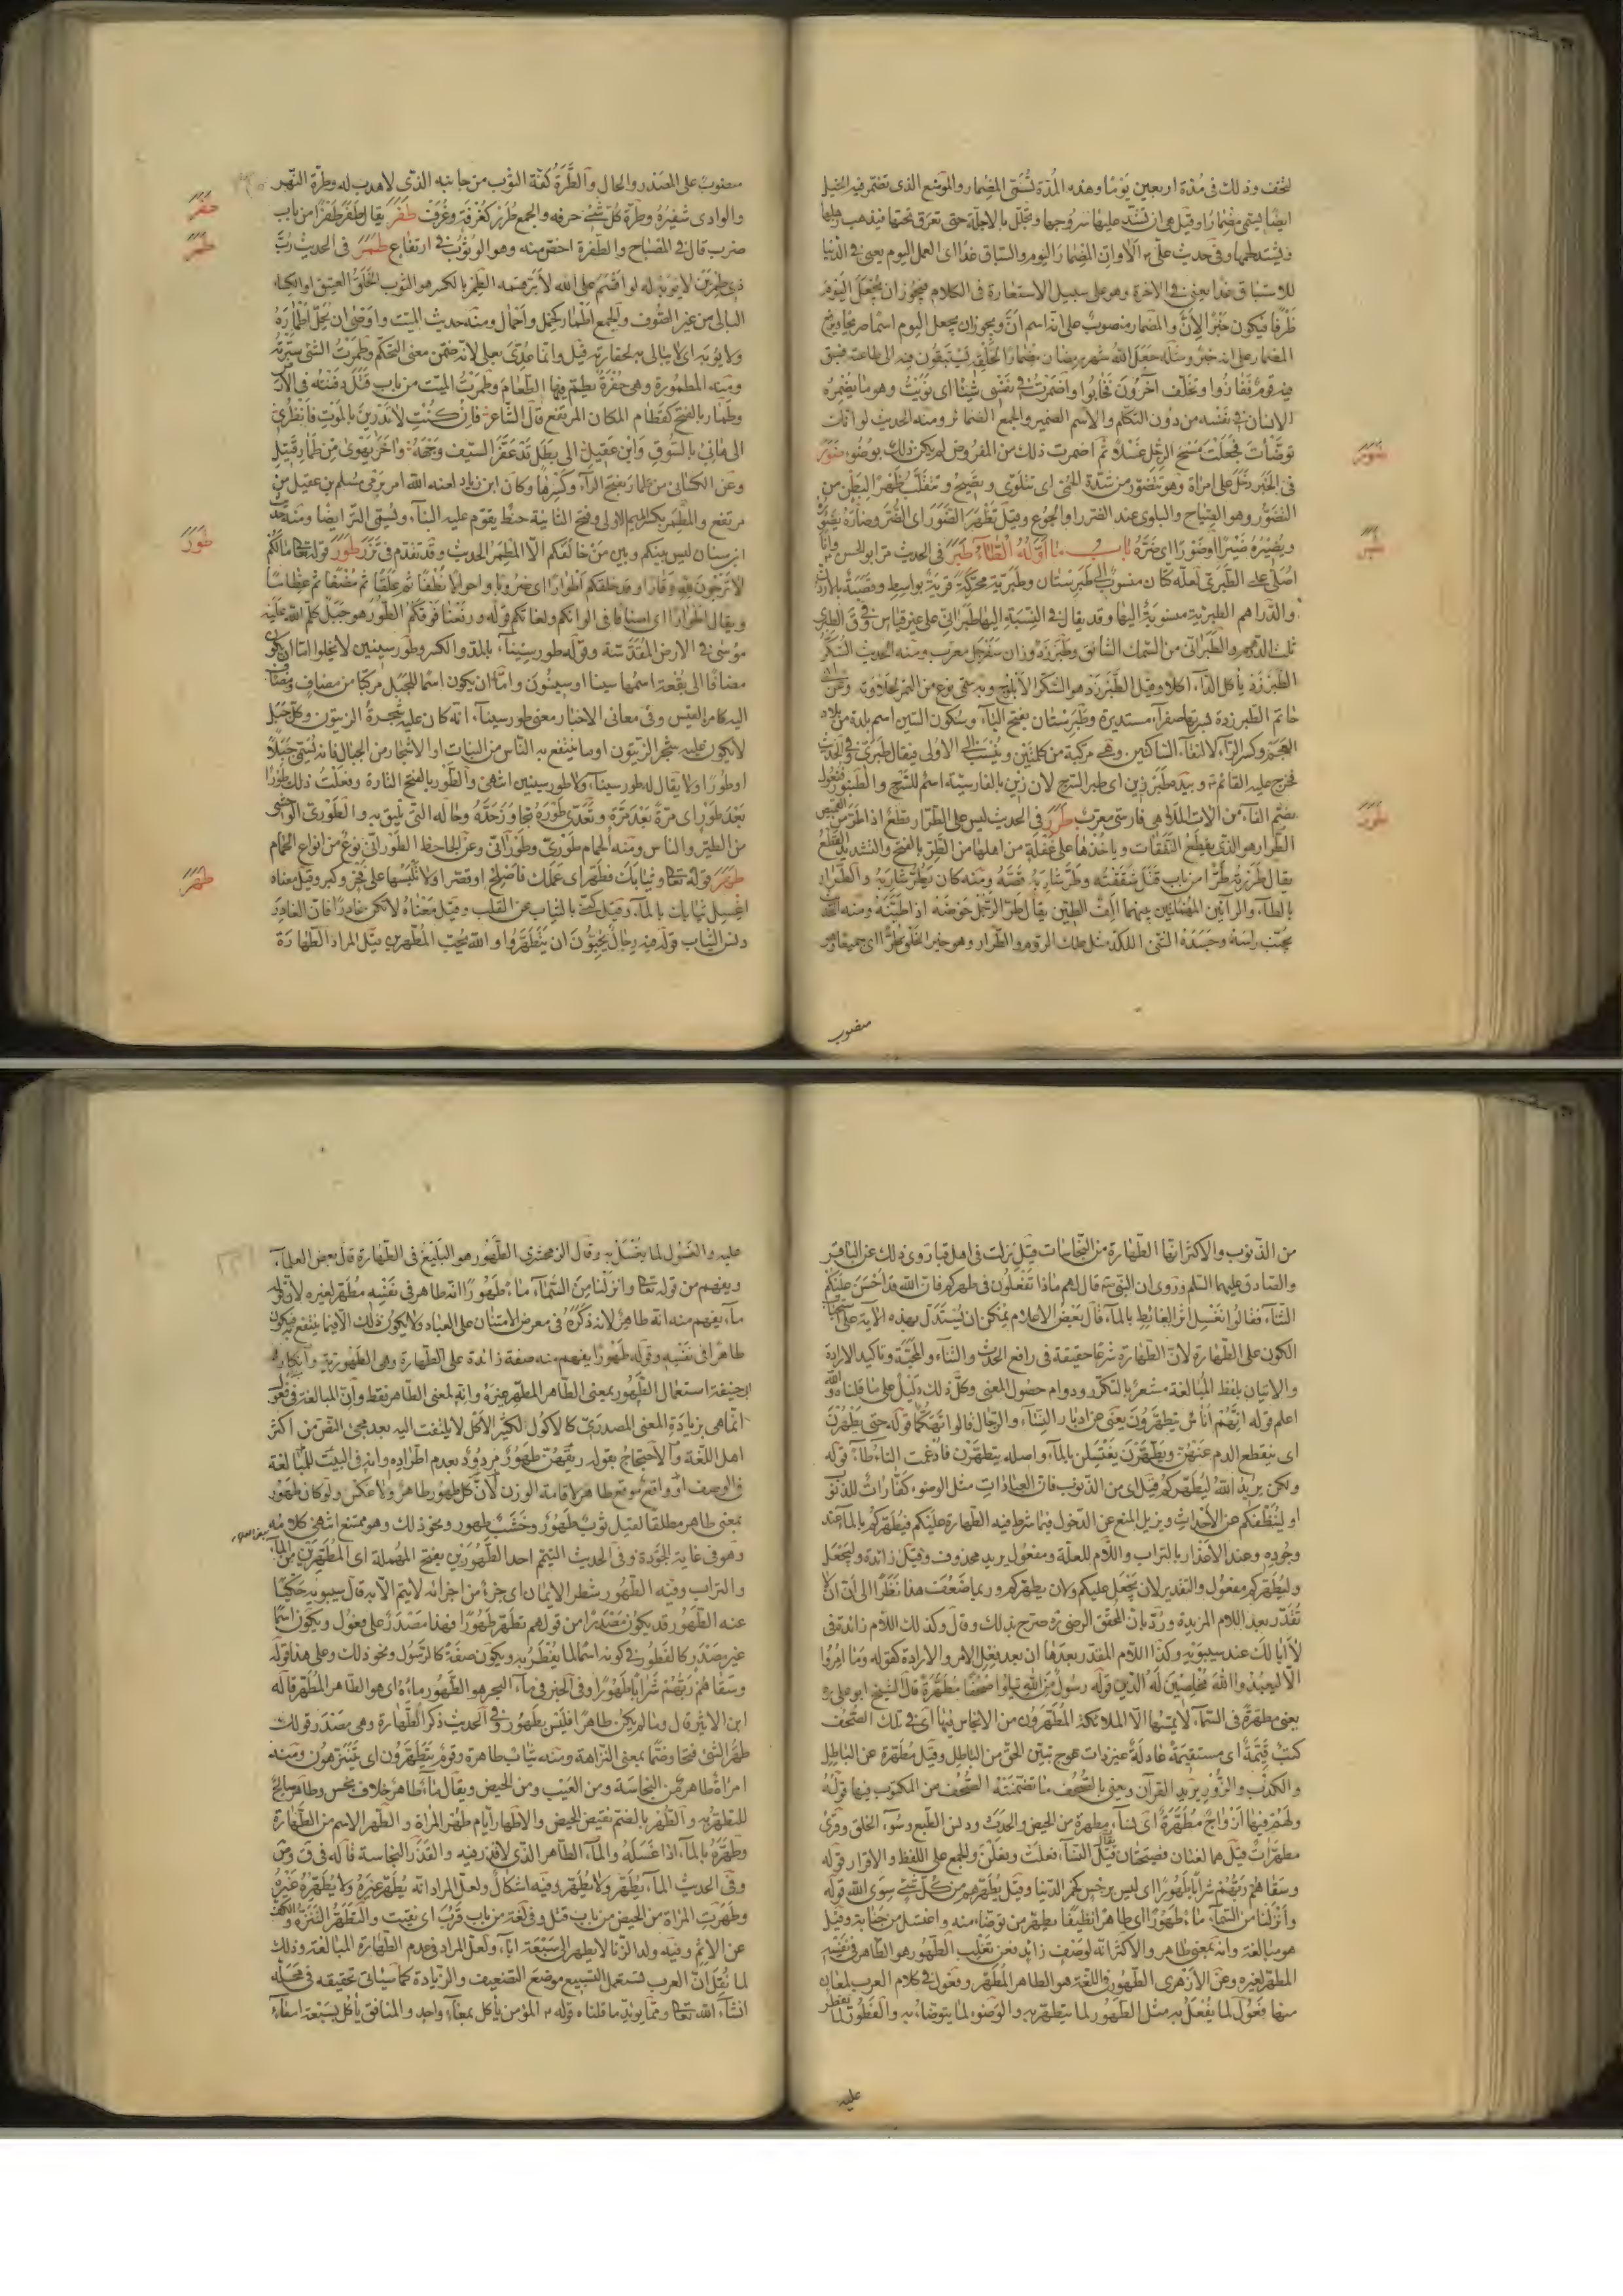 لتخف وذلك فى مدة اربعين يوما وهذه المدة تسمى المضمار والموضع الذى تضمر فيه الخيل
ايضا يسمى مضمارا وقيل هى ان تشد عليها سروجها وتجلل بالاجلة حتى تعرق تحتها فيذهب رهلها
ويشتد لحمها وفى حديث على الا وان المضمار اليوم والسباق غدا اى العمل اليوم يعنى فى الدنيا
للاستباق غدا يعنى فى الاخرة وهو على سبيل الاستعارة فى الكلام فيجوز ان يجعل اليوم
ظرفا فيكون خبر الان والمضمار منصوب على انه اسم ان ويجوز ان يجعل اليوم اسما صريحا ويرفع
المضمار على انه خبر ومثله جعل الله شهر رمضان مضمارا لخلقه ليستبقون فيه الى طاعته فسبق
فيه قوم ففازوا وتخلف آخرون فخابوا واضمرت فى نفسى شيئا اى نويت وهو ما يضمره
الانسان فى نفسه من دون التكلم والاسم الضمير والجمع الضمائر ومنه الحديث لو انك
توضات فجعلت مسح الرجل غسلا ثم اضمرت ذلك من المفروض لم يكن ذلك بوضوء ضور
ضور
فى الخبر دخل على امراة وهو تتضور من شدة الحمى اى تتلوى وتضيح وتتقلب ظهرا لبطن من
التضور وهو الصياح والتلوى عند الضرر او الجوع وقيل تظهر الضور اى الضر وضاره يضوره
ويضيره ضيرا وضورا اى ضره باب ما اوله الطاء طبر فى الحديث مر ابو الحسن وانا
طبر
اصلى على الطبرى لعله كان منسوب الى طبرستان وطبرية محركة قرية بواسط وقصبة بالاردن
والدراهم الطبرية منسوبة اليها وقد يقال فى النسبة اليها طبرانى على غير قياس وفى ق الطبرى
ثلث الدرهم والطبرانى من السمك الشانق وطبرزد وزان سفرجل معرب ومنه الحديث السكر
الطبرزد ياكل الداء اكلا وقيل الطبرزد هو السكر الابلوج وبه سمى نوع من التمر لحلاوته وعن ابى
حاتم الطبرزدة بسرتها صفراء مستديرة وطبرستان بفتح الباء وسكون السين اسم بلدة من بلاد
العجم وكسر الراء لالتقاء الساكنين وهى مركبة من كلمتين وينسب الى الاولى فيقال طبرى وفى الحديث
فخرج عليه القائم وبيده طبرزين اى طبر السرج لان زين بالفارسية اسم للسرج والطنبور فنعول
بضم الفاء من الات الملاهى فارسى معرب طرر فى الحديث ليس على الطرار قطع اذا طر من القميص
طرر
الطرار هو الذى يقطع النفقات وياخذها على غفلة من اهلها من الطر بالفتح والتشديد القطع
يقال طررته طرا من باب قتل شققته وطر شاربه قصه ومنه كان يطر شاربه والطرار
بالطاء والرائين المهملتين بينهما الف الطين يقال طر الرجل حوضه اذا طينه ومنه
يجنب راسه وجسده الشى اللكد مثل علك الروم والطرار وهو خير الخلق طرا اى جميعا وهو
منصوب
منصوب على المصدر والحال والطرة كفة الثوب من جانبه الذى لا هدب له وطرة النهر
والوادى شفيره وطرة كل شى حرفه والجمع طرر كغرفة وغرف طفر يقال طفر طفرا من باب
ضرب قال فى المصباح والطفرة اخص منه وهو الوثوب فى ارتفاع طمر فى الحديث رب
طفر
طمر
ذى طمرين لا يؤبه له لو اقسم على الله لابر قسمه الطمر بالكسر هو الثوب الخلق العتيق او الكساء
البالى من غير الصوف والجمع اطمار كحمل واحمال ومنه حديث الميت واوصى ان تحل اطماره
ولا يؤبه اى لا يبالى به لحقارته قيل وانما عدى بعلى لانه ضمن معنى التحكم وطمرت الشى سترته
ومنه المطمورة وهى حفرة يطمر فيها الطعام وطمرت الميت من باب قتل دفنته فى الارض
وطمار بالفتح كقطام المكان المرتفع قال الشاعر فان كنت لا تدرين بالموت فانظرى
الى هانئ بالسوق وابن عقيل الى بطل قد عقر السيف وجهه واخر يهوى من طمار قتيل
وعن الكسائى من طمار بفتح الراء وكسرها وكان ابن زياد لعنه الله امر برمى مسلم بن عقيل من
مرتفع والمطمر بكسر الميم الاولى وفتح الثانية خيط يقوم عليه البناء ويسمى التر ايضا ومنه حديث
ابن سنان ليس بينكم وبين من خالفكم الا المطمر الحديث وقد تقدم فى ترر طور قوله تعالى ما لكم
طور
لا ترجون لله وقارا وقد خلقكم اطوارا اى ضروبا واحوالا نطفا ثم علقا ثم مضغا ثم عظاما
ويقال اطوارا اى اصنافا فى الوانكم ولغاتكم قوله ورفعنا فوقكم الطور هو جبل كلم الله عليه
موسى فى الارض المقدسة وقوله طور سيناء بالمد والكسر وطور سينين لا يخلوا اما ان يكون
مضافا الى بقعة اسمها سينا او سينون واما ان يكون اسما للجبل مركبا من مضاف ومضاف
اليه كامرء القيس وفى معانى الاخبار معنى طور سيناء انه كان عليه شجرة الزيتون وكل جبل
لا يكون عليه شجر الزيتون او ما ينتفع به الناس من النبات او الاشجار من الجبال فانه يسمى جبلا
او طورا ولا يقال له طور سيناء ولا طور سينين انتهى والطور بالفتح التارة وفعلت ذلك طورا
بعد طور اى مرة بعد مرة وتعدى طوره تجاوز حده وحاله التى تليق به والطورى الوحشى
من الطير والناس ومنه الحمام طورى وطورانى وعن الجاحظ الطورانى نوع من انواع الحمام
طهر قوله تعالى وثيابك فطهر اى عملك فاصلح او قصر اولا تلبسها على فخر وكبر وقيل معناه
طهر
اغسل ثيابك بالماء وقيل كنى بالثياب عن القلب وقيل معناه لا تكن غادرا فان الغادر
دنس الثياب قوله فيه رجال يحبون ان يتطهروا والله يحب المطهرين قيل المراد الطهارة
من الذنوب والاكثر انها الطهارة من النجاسات قيل نزلت فى اهل قبا روى ذلك عن الباقر
والصادق عليهما السلم وروى ان النبى قال لهم ماذا تفعلون فى طهركم فان الله قد احسن عليكم
الثناء فقالوا نغسل اثر الغائط بالماء قال بعض الاعلام يمكن ان يستدل بهذه الاية على
الكون على الطهارة لان الطهارة شرعا حقيقة فى رافع الحدث والثناء والمحبة وتاكيد الارادة
والاتيان بلفظ المبالغة مشعر بالتكرر ودوام حصول المعنى وكل ذلك دليل على ما قلناه والله
اعلم قوله انهم اناس يتطهرون يعنى عن ادبار النساء والرجال قالوا تهكما قوله حتى يطهرن
اى ينقطع الدم عنهن ويطهرن يغتسلن بالماء واصله يتطهرن فادغمت التاء طاء قوله
ولكن يريد الله ليطهركم قيل اى من الذنوب فان العبادات مثل الوضوء كفارات للذنوب
او لينظفكم عن الاحداث ويزيل المنع عن الدخول فيما شرط فيه الطهارة عليكم فيطهركم بالماء عند
وجوده وعند الاعذار بالتراب واللام للعلة ومفعول يريد محذوف وقيل زائدة وليجعل
وليطهركم مفعول والتقدير لان يجعل عليكم ولان يطهركم وربما ضعف هذا نظرا الى ان ان لا
تقدر بعد اللام المزيدة ورد بان المحقق الرضى صرح بذلك وقال وكذلك اللام زائدة فى
لا ابا لك عند سيبويه وكذا اللام المقدر بعدها ان بعد فعل الامر والارادة كقوله وما امروا
الا ليعبدوا الله مخلصين له الدين قوله رسول من الله يتلوا صحفا مطهرة قال الشيخ ابو على
يعنى مطهرة فى السماء لا يمسها الا الملائكة المطهرون من الانجاس فيها اى فى تلك الصحف
كتب قيمة اى مستقيمة عادلة غير ذات عوج تبين الحق من الباطل وقيل مطهرة عن الباطل
والكذب والزور يريد القران ويعنى بالصحف ما تضمنته الصحف من المكتوب فيها قوله
ولهم فيها ازواج مطهرة اى نساء مطهرة من الحيض والحدث ودنس الطبع وسوء الخلق وقرئ
مطهرات قيل هما لغتان فصيحتان يقال النساء فعلت وفعلن والجمع على اللفظ والافراد قوله
وسقاهم ربهم شرابا طهورا اى ليس برجس كخمر الدنيا وقيل يطهرهم من كل شى سوى الله قوله
وانزلنا من السماء ماء طهورا اى طاهرا نظيفا يطهر من توضا منه واغتسل من جنابة وقيل
هو مبالغة وانه بمعنى طاهر والاكثر انه لوصف زائد فعن تغلب الطهور هو الطاهر فى نفسه
المطهر لغيره وعن الازهرى الطهور فى اللغة هو الطاهر المطهر وفعول فى كلام العرب لمعان
منها فعول لما يفعل به مثل الطهور لما يتطهر به والوضوء لما يتوضا به والفطور لما يفطر
عليه
عليه والغسول لما يغتسل به وقال الزمخشرى الطهور هو البليغ فى الطهارة قال بعض العلماء
ويفهم من قوله تعالى وانزلنا من السماء ماء طهورا انه طاهر فى نفسه مطهر لغيره لان قوله
ماء يفهم منه انه طاهر لانه ذكره فى معرض الامتنان على العباد ولا يكون ذلك الا فيما ينتفع به فيكون
طاهرا فى نفسه وقوله طهورا يفهم منه صفة زائدة على الطهارة وهى الطهورية وانكار
ابى حنيفة استعمال الطهور بمعنى الطاهر المطهر غيره وانه لمعنى الطاهر فقط وان المبالغة فى فعول
انما هى بزيادة المعنى المصدرى كالاكول لكثير الاكل لا يلتفت اليه بعد مجئ النص من اكثر
اهل اللغة والاحتجاج بقوله ريقهن طهور مردود بعدم اطراده وانه فى البيت للمبالغة
فى الوصف او واقع موقع طاهر لاقامة الوزن لان كل طهور طاهر ولا عكس ولو كان طهور
بمعنى طاهر مطلقا لقيل ثوب طهور وخشب طهور ونحو ذلك وهو ممتنع انتهى كلامه
وهو فى غاية الجودة وفى الحديث التيمم احد الطهورين بفتح المهملة اى المطهرين من الماء
والتراب وفيه الطهور شطر الايمان اى جزء من اجزائه لا يتم الا به قال سيبويه حكيا
عنه الطهور قد يكون مصدرا من قولهم تطهر طهورا فهذا مصدر على فعول ويكون اسما
غير مصدر كالفطور فى كونه اسما لما يفطر به ويكون صفة كالرسول ونحو ذلك وعلى هذا قوله
وسقاهم ربهم شرابا طهورا وفى الخبر فى ماء البحر هو الطهور ماؤه اى هو الطاهر المطهر قاله
ابن الاثير قال وما لم يكن طاهرا فليس بطهور وفى الحديث ذكر الطهارة وهى مصدر قولك
طهر الشئ فتحا وضما بمعنى النزاهة ومنه ثياب طاهرة وقوم يتطهرون اى يتنزهون ومنه
امراة طاهرة من النجاسة ومن العيب ومن الحيض ويقال ماء طاهر خلاف نجس وطاهر صالح
للتطهر به والطهر بالضم نقيض الحيض والاطهار ايام طهر المراة والطهر الاسم من الطهارة
وطهره بالماء اذا غسله والماء الطاهر الذى لا قذر فيه والقذر النجاسة قاله فى ق وص
وفى الحديث الماء يطهر ولا يطهر وفيه اشكال ولعل المراد انه يطهر غيره ولا يطهره غيره
وطهرت المراة من الحيض من باب قتل وفى لغة من باب قرب اى نقيت والتطهر التنزه والكف
عن الاثم وفيه ولد الزنا لا يطهر الى سبعة اباء ولعل المراد فى عدم الطهارة المبالغة وذلك
لما نقل ان العرب تستعمل التسبيع موضع التضعيف والزيادة كما سياتى تحقيقه فى محله
انشاء الله تعالى ومما يؤيد ما قلناه قوله المؤمن ياكل بمعاء واحد والمنافق ياكل بسبعة امعاء